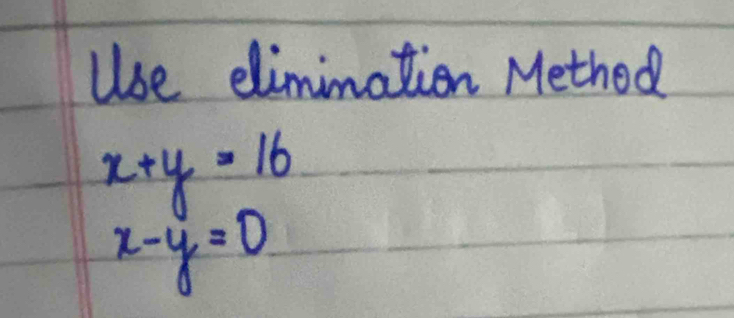 Use elimination Method
x+y = 16
x-y = 0